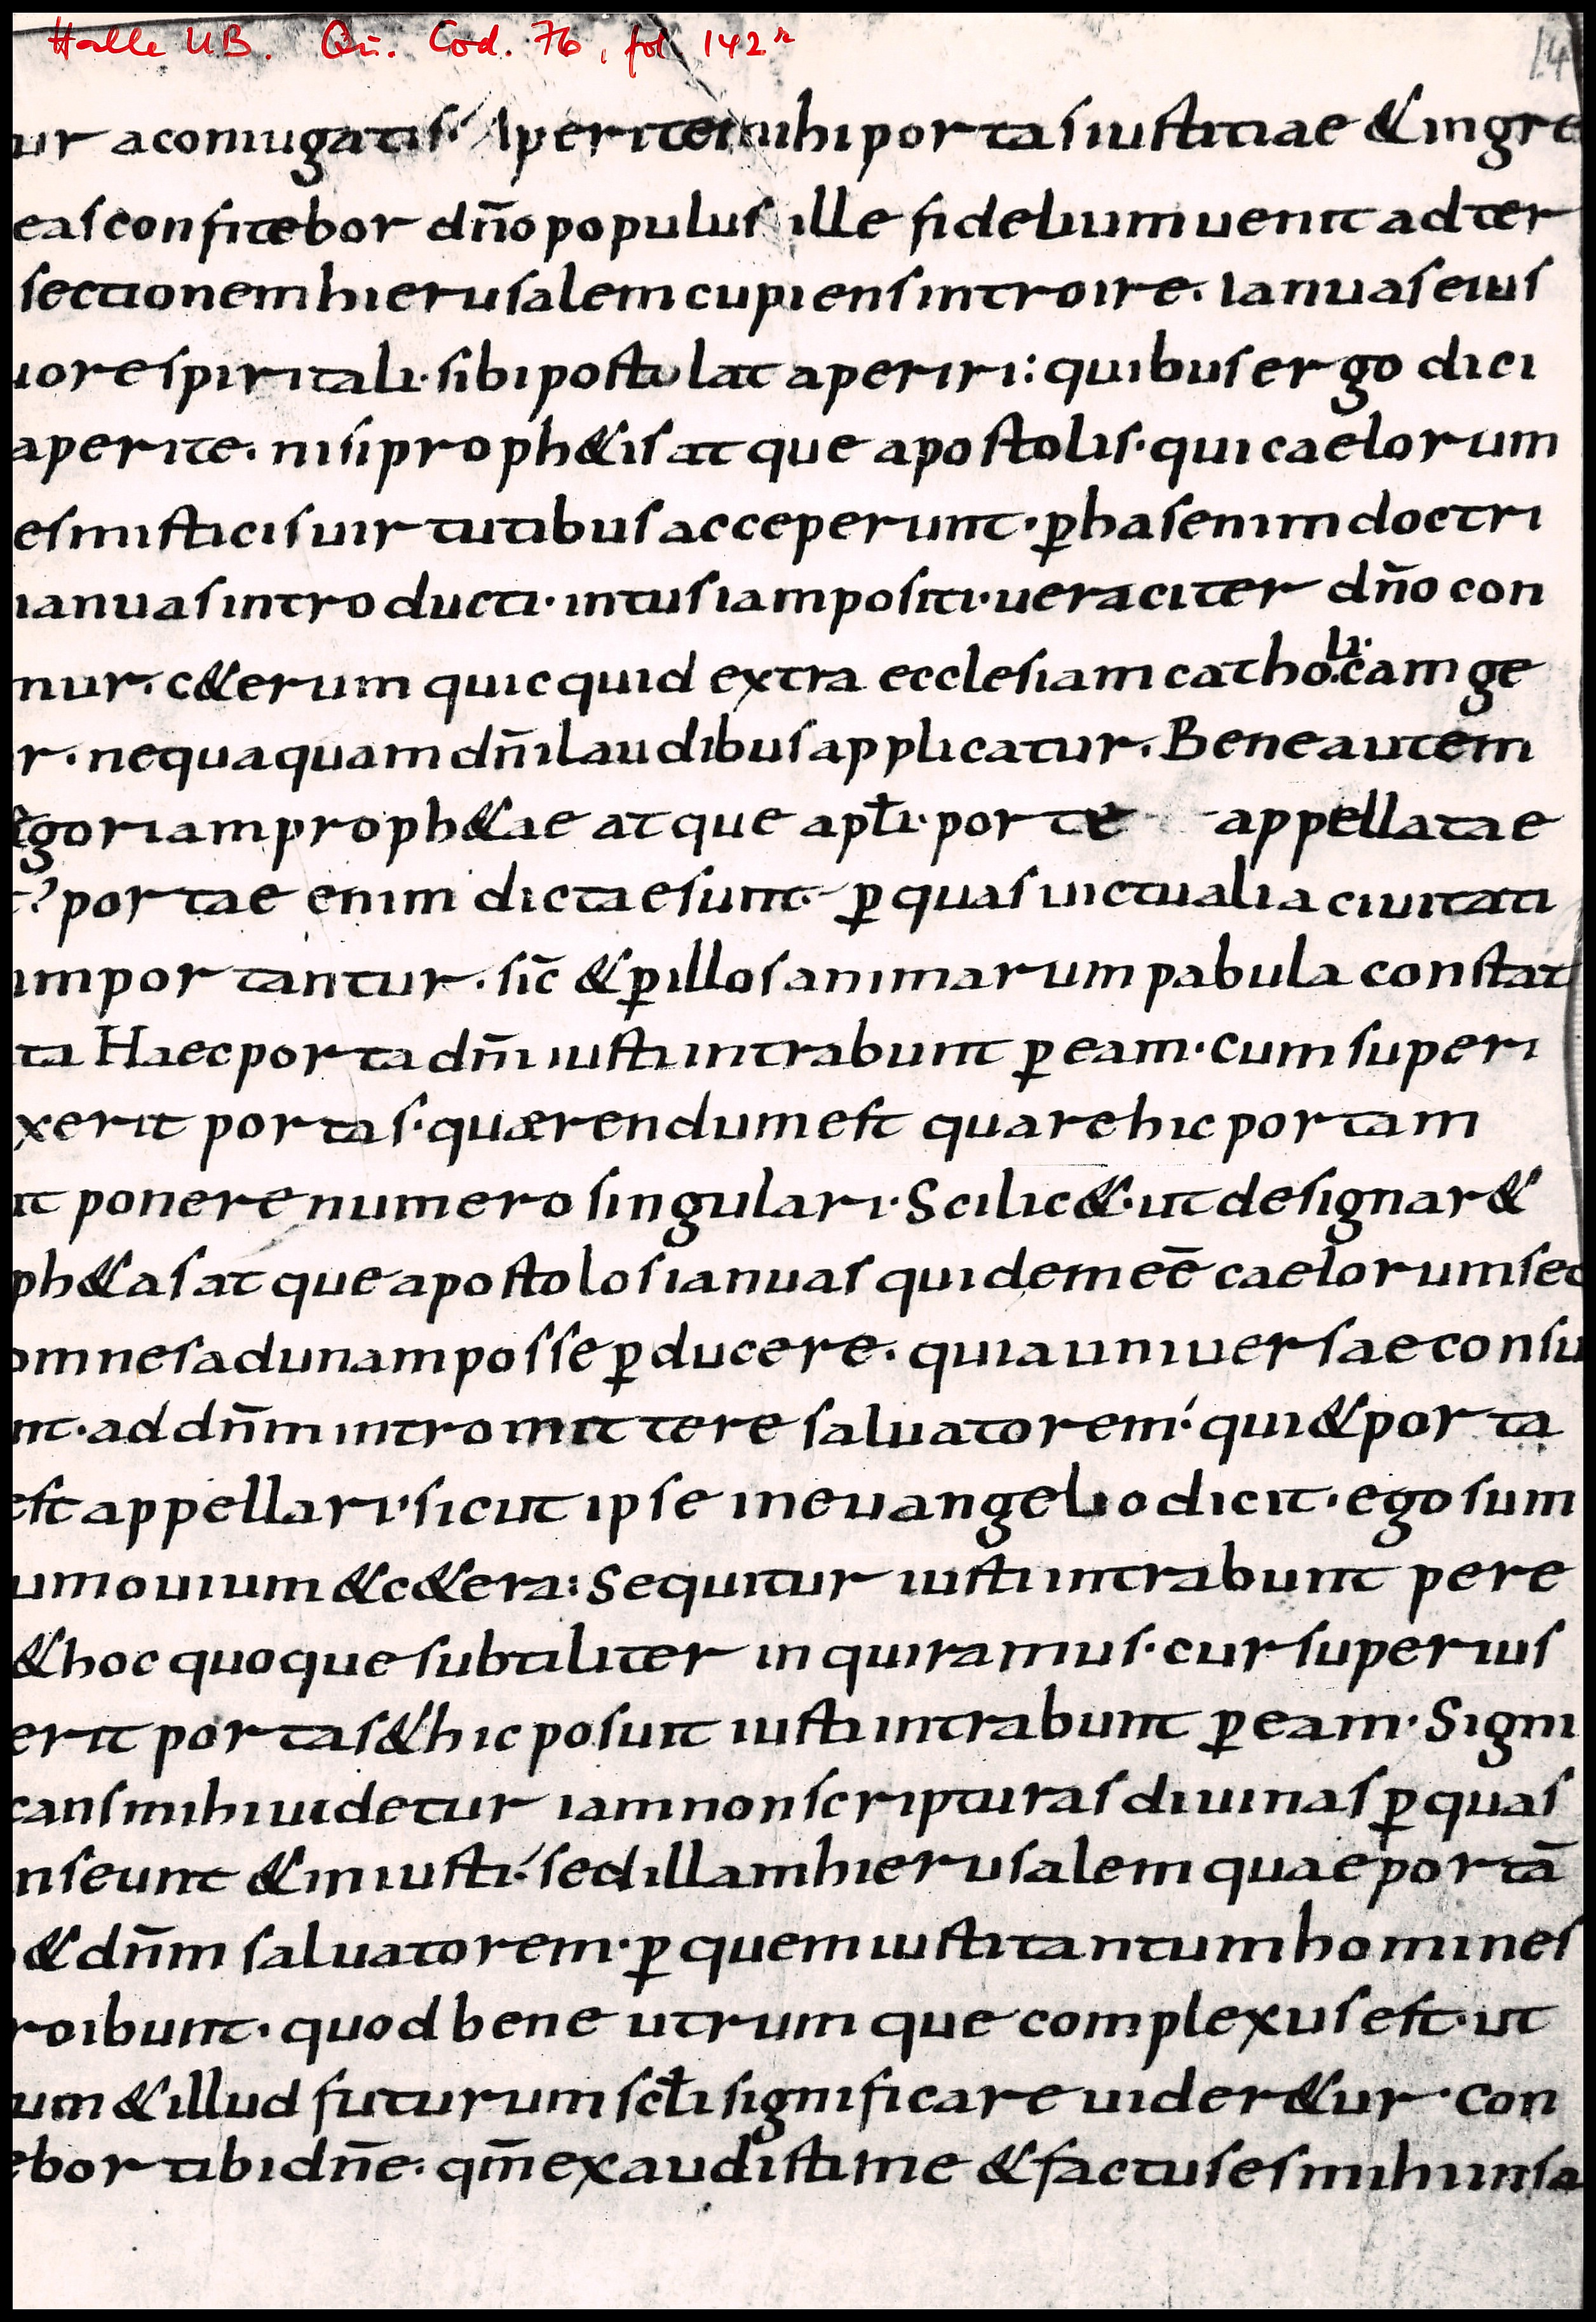 Halle UB. Qu. Cod. 76, fol. 142r
14
ur a coniugatis· Aperite mihi portas iustitiae & ingre
eas confitebor dño populus ille fidelium uenit ad ter
sectionem hierusalem cupiens introire. Ianuas eius
uore spiritali· sibi postulat aperiri: quibus ergo dici
aperite· nisi proph&is atque apostolis· qui caelorum
es misticis uirtutibus acceperunt· ꝑ has enim doctri
ianuas introducti· intus iam positi· ueraciter dño con
mur· c&erum quicquid extra ecclesiam catholicam ge
r· nequaquam dñi laudibus applicatur. Bene autem
egoriam proph&ae atque apƚi· porte appellatae
t? portae enim dictae sunt· ꝑ quas uictualia ciuitati
importantur· sic̄ & ꝑ illos animarum pabula constat
ta Haec porta dñi iusti intrabunt ꝑ eam· Cum superi
xerit portas· quærendum est quare hic portam
it ponere numero singulari· Scilic&· ut designar&
ph&as atque apostolos ianuas quidem eē caelorum sed
omnes ad unam posse ꝑducere· quia uniuersae consu
nt· ad dñm intromittere saluatorem· qui & porta
est appellari· sicut ipse in euangelio dicit· ego sum
um ouium & c&era: Sequitur iusti intrabunt per e
& hoc quoque subtiliter inquiramus· cur superius
erit portas & hic posuit iusti intrabunt ꝑ eam· Signi
cans mihi uidetur iam non scripturas diuinas ꝑ quas
nseunt & iniusti· sed illam hierusalem quae portā
& dñm saluatorem· ꝑ quem iusti tantum homines
roibunt· quod bene utrumque complexus est· ut
um & illud futurum scƚi significare uider&ur· Con
ebor tibi dñe· qm̄ exaudisti me & factus es mihi in sa